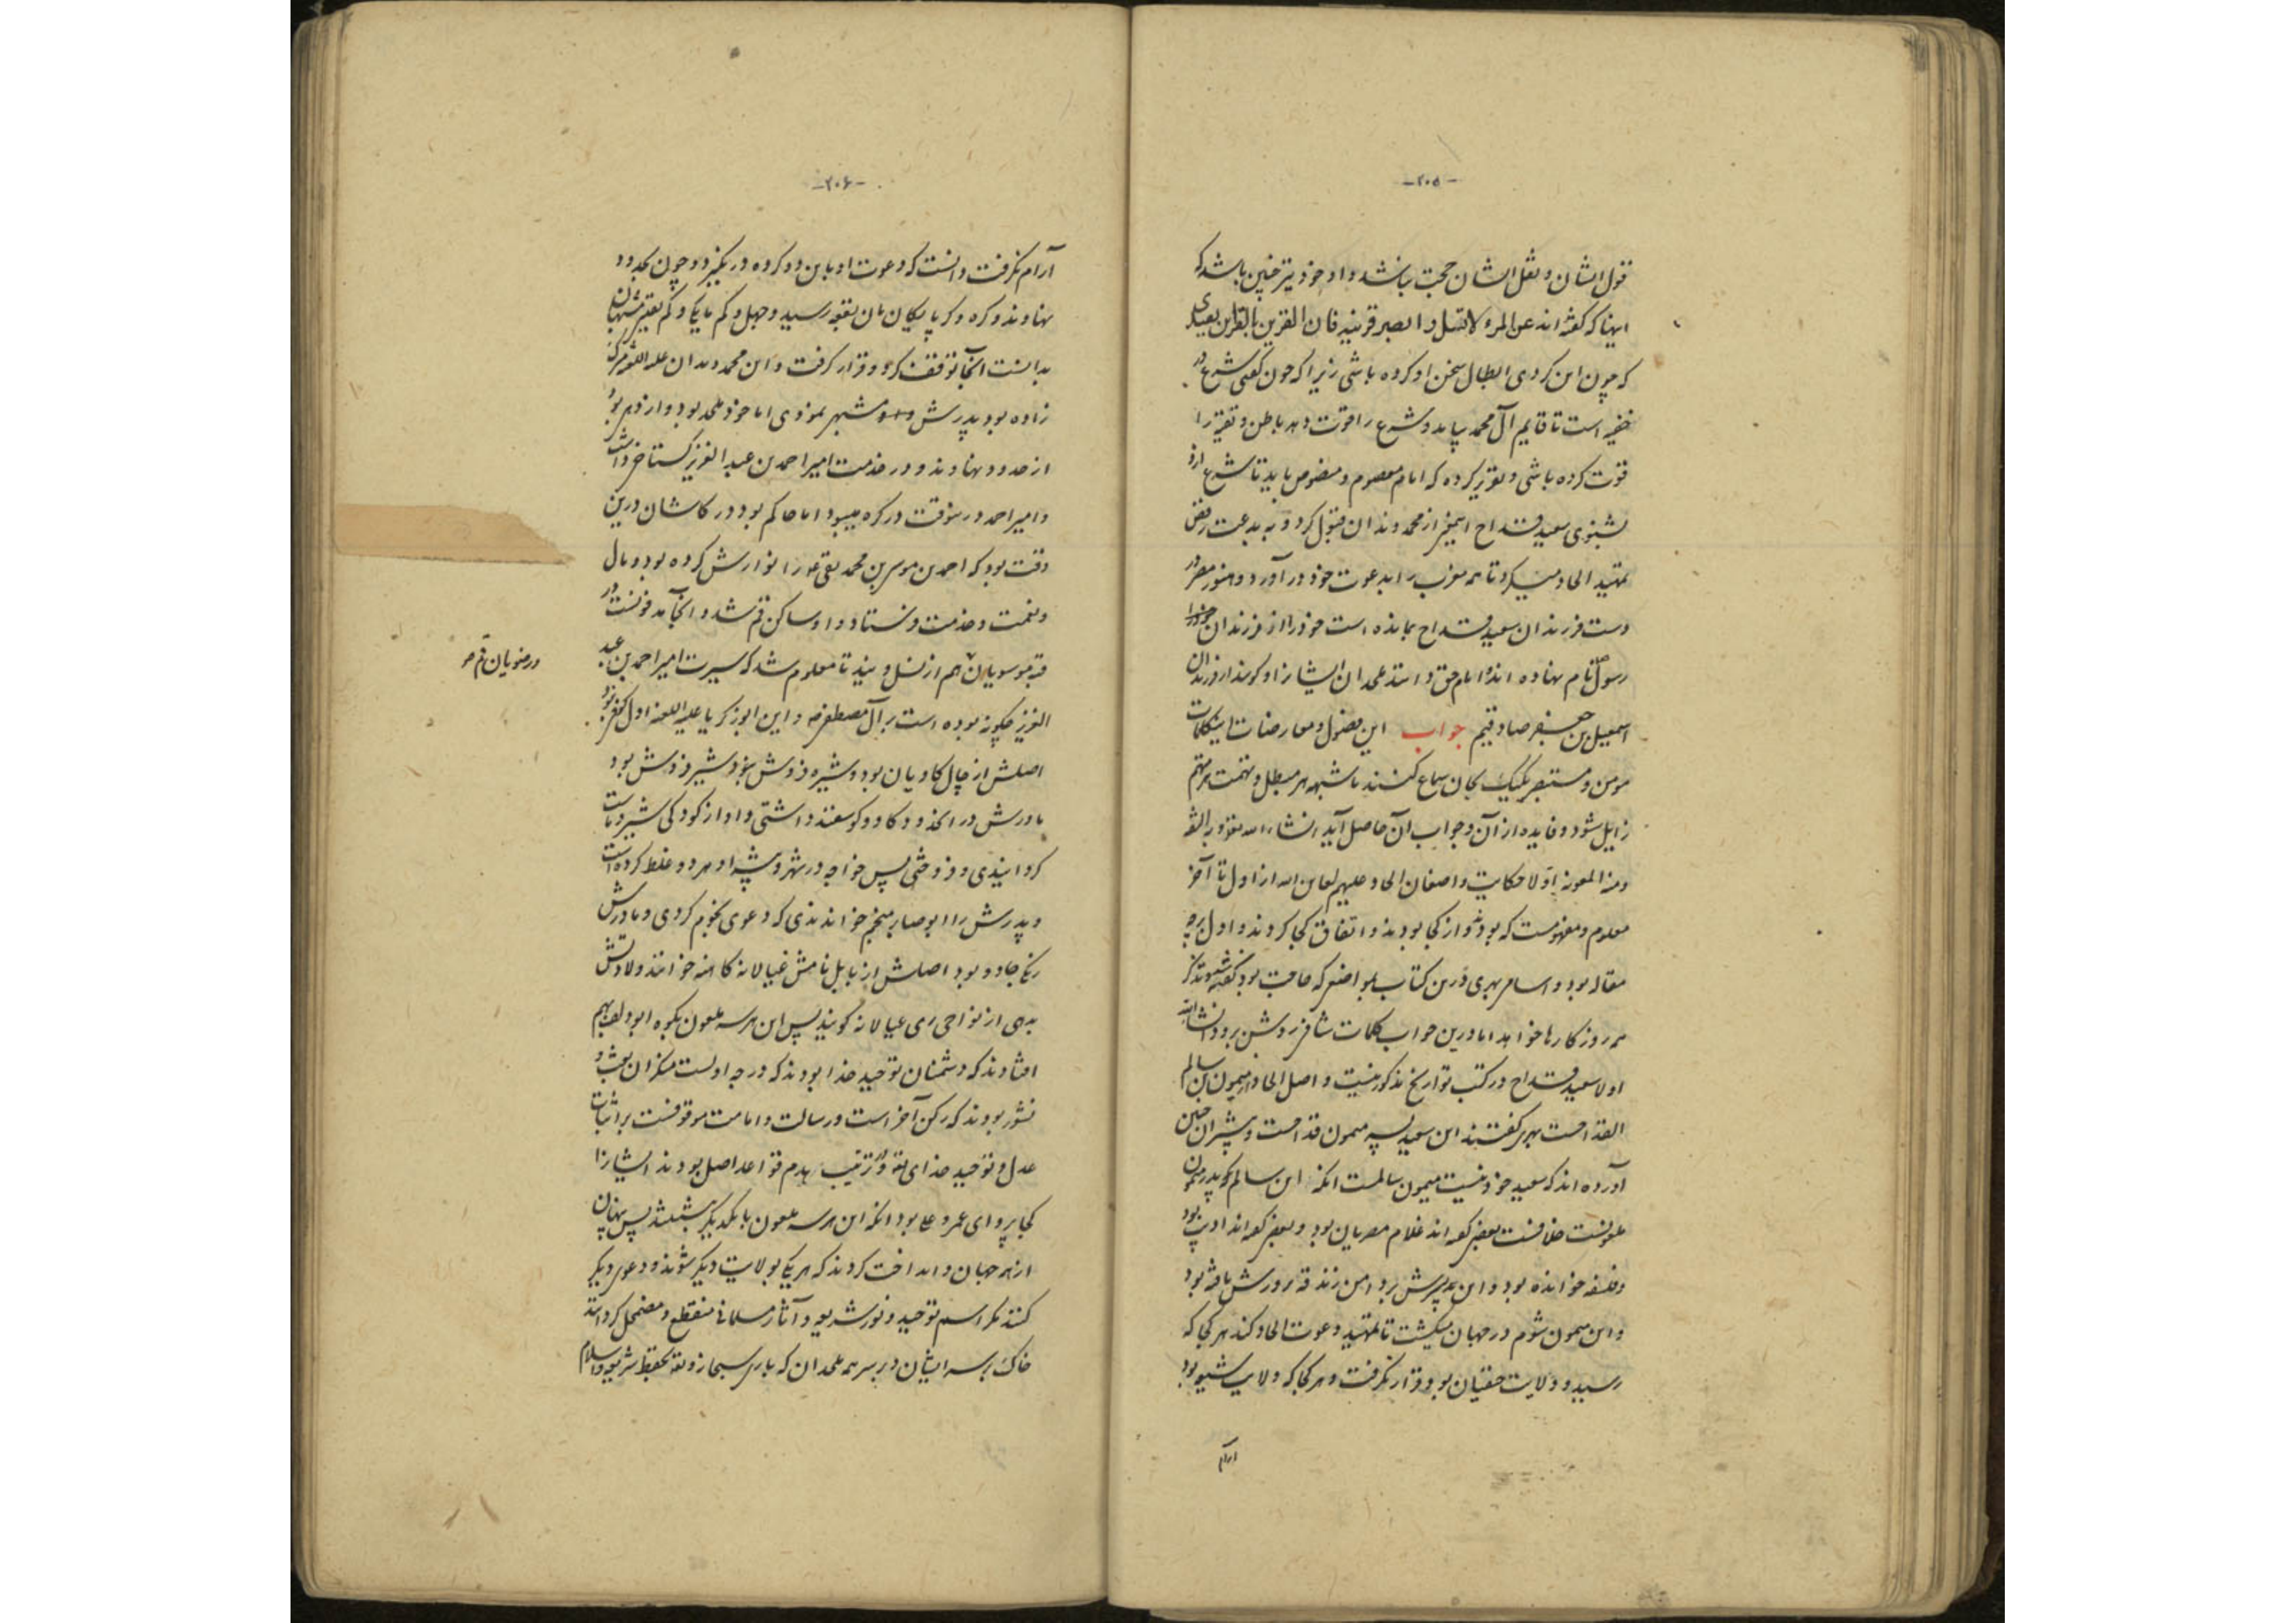 -۲۰۵-
قول ایشان و نقل ایشان حجت نباشد و او خود نیز چنین باشد که
اینها که گفته اند عن المرء لا تسئل و ابصر قرینه فان القرین بالقرین یقتدی
که چون این کردی ابطال سخن او کرده باشی زیرا که چون گفتی شرع در
خفیه است تا قایم آل محمد بیاید و شرع را قوت دهد باطن و تقیه را
قوت کرده باشی و تقریر کرده که امام معصوم و منصوص باید تا شرع ازو
بشنوی سعید قداح از محمد دندان قبول کرد و به بدعت رفض
تمهید الحاد میکرد تا همه مغرب را بدعوت خود در آورد و هنوز مصر در
دست فرزندان سعید قداح بمانده است خود را از فرزندان
رسول نام نهاده اند و امام حق دانند ملحدان ایشانرا و گویند از فرزندان
اسمعیل بن جعفر صادقیم جواب این فصول و معارضات اینکلمات
مومن و مستبصر یکیک بجان سماع کنند تا شبهه هر مبطل و تهمت هر متهم
زایل شود و فایده از آن و جواب آن حاصل آید انشاء الله
و منه المعونه اولا حکایت واضعان الحاد علیهم لعاین الله از اول تا آخر
معلوم و مفهومست که بودند و از کجا بودند و اتفاق کجا کردند و اول برچه
مقاله بود و اسامی هر یکی درین کتاب بمواضعی که حاجت بود گفته شود
همه روزگارها خواهد اما درین جواب کلمات شافی روشن برود انشاءالله
اولا سعید قداح در کتب تواریخ مذکور نیست و اصل الحاد از میمون بن سالم
القداحست بهری گفتند این سعید پسر میمون قداحست و بیشتران چنین
آورده اند که سعید خود نیست میمون سالمست آنکه این سالم که پدر میمون
ملعونست خلافست بعضی گفته اند غلام مصریان بود و بعضی گفته اند ادیب بود
و فلسفه خوانده بود و این پسرش بر دامن زندقه پرورش یافته بود
و این میمون شوم در جهان میگشت تا تمهید دعوت الحاد کند هر کجا که
رسید و ولایت حنفیان بود قرار نگرفت و هر کجا که ولایت شیعه بود
آرام
-۲۰۶-
آرام نگرفت دانست که دعوت او باین دو گروه در نگیرد و چون بحدود
نهاوند و کره و کرپایکان بآن بقعه رسید و جهل و کم مایگی و کم بقیتی مشبهیان
بدانست آنجا توقف کرد و قرار گرفت و این محمد دندان علیه اللعنه گر
زاده بود پدرش و مشبهی نمودی اما خود ملحد بود و
از حدود نهاوند و در خدمت امیر احمد بن عبدالعزیز گستاخی داشت
و امیر احمد در هنوقت در کره میبود اما حاکم بود در کاشان درین
وقت بود که احمد بن موسی بن محمد تقی ع را نوازش کرده بود و مال
و نعمت و خدمت فرستاد و او ساکن قم شد و آنجا مدفونست و در
قم موسویان هم از نسل ویند تا معلوم شد که سیرت امیر احمد بن عبد
العزیز چگونه بوده است بر آل مصطفی ص و این ابوزکریا علیه اللعنه اول
اصلش از چال کاویان بود و شیره فروش نبود شیر فروش بود
مادرش در و گاو و گوسفند داشتی و او از کودکی شیر و ماست
گردانیدی و فروختی پس خواجه در شهر و پیشه او هر دو غلط کرده است
و پدرش را ابو صابر منجم خواندندی که دعوی نجوم کردی و مادرش
جادو بود اصلش از بابل نامش غیالانه کاهنه خوانند ولادتش
بدهی از نواحی ری غیالانه گویند پس این هر سه ملعون بکوه ابودلف بهم
افتادند که دشمنان توحید خدا بودند که درجه اولست منکران بعث و
نشور بودند که رکن آخر است و رسالت و امامت موقوفست بر اثبات
عدل و توحید خدای تعالی و در ترتیب هدم قواعد اصل بودند ایشانرا
کجا پروای عمر و علی بود آنکه این هر سه ملعون با یکدیگر بنشستند پس پنهان
از همه جهان و کردند که هر یکی بولایت دیگر شوند و دعوی دیگر
کنند مگر اسم توحید و نور شریعه و آثار مسلمانی منقطع و مضمحل گردانند
خاک بر سر ایشان و بر سر همه ملحدان که باری سبحانه و تعالی بحفظ شریعه و اسلام
در رضویان قم